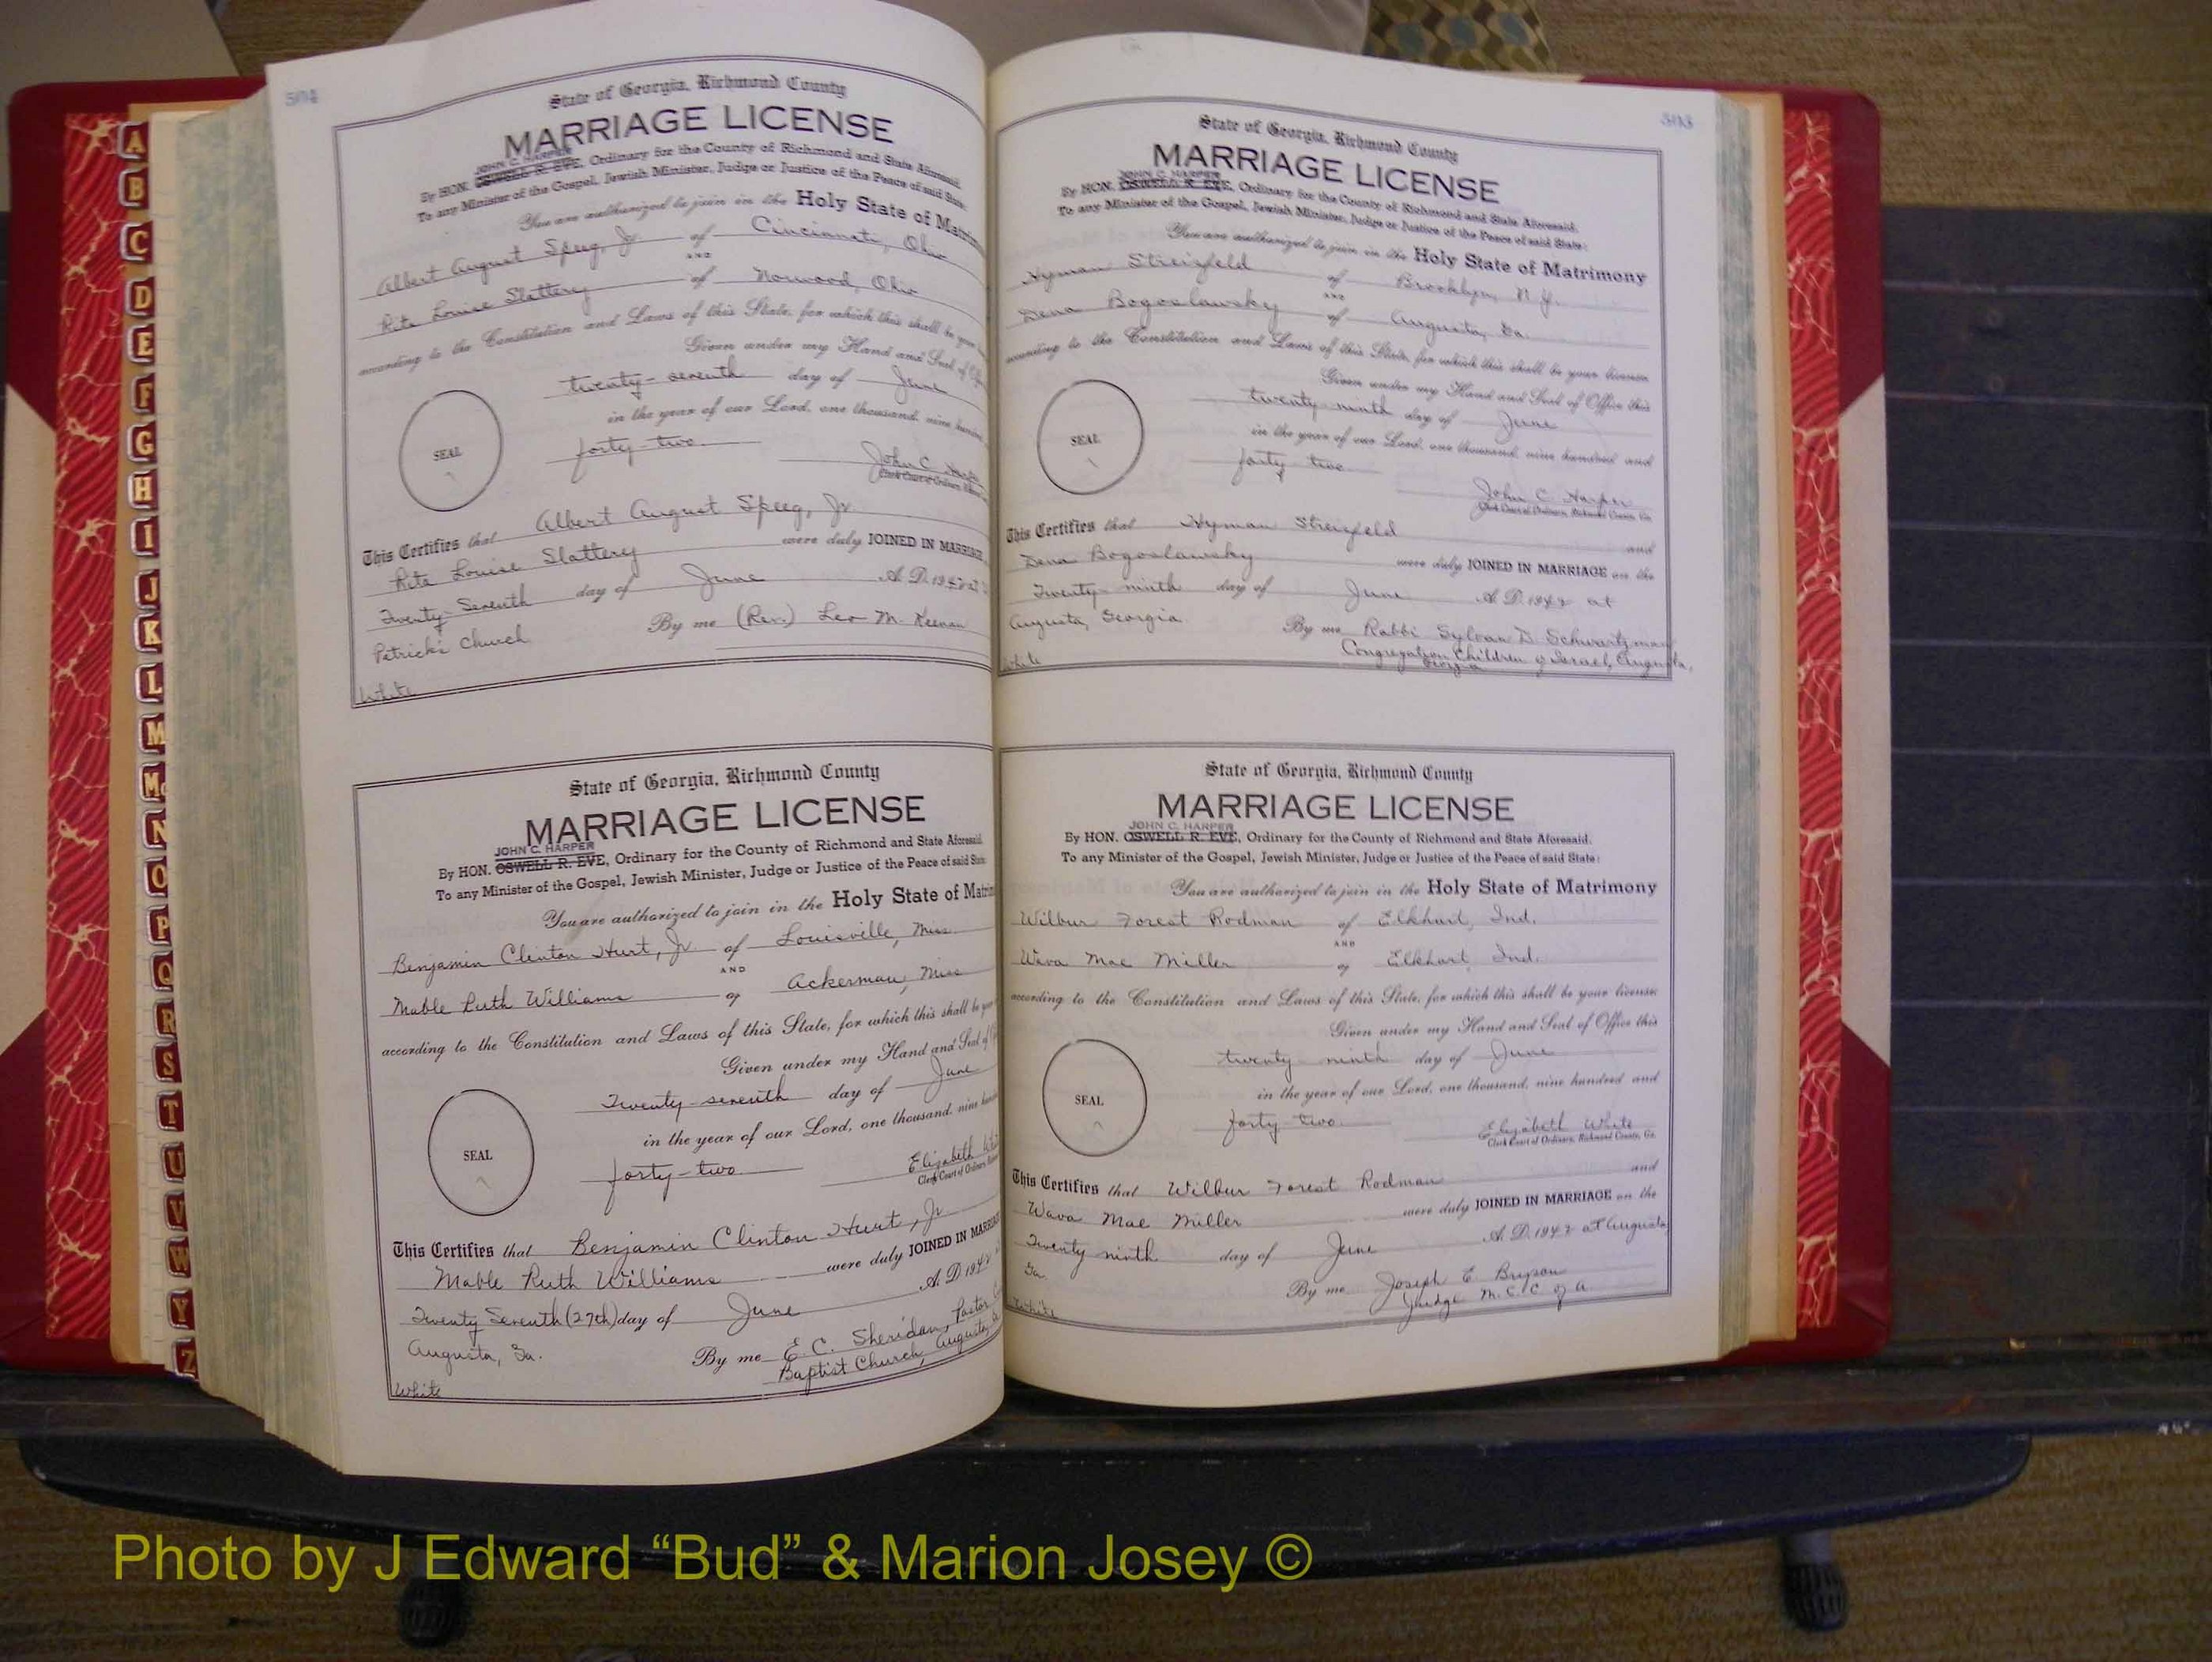 504
State of Georgia, Richmond County
MARRIAGE LICENSE
JOHN C. HARPER
By HON. OSWELL R. EVE, Ordinary for the County of Richmond and State Aforesaid.
To any Minister of the Gospel, Jewish Minister, Judge or Justice of the Peace of said State:
You are authorized to join in the Holy State of Matrimony
Albert August Speeg, Jr of Cincinnati, Ohio
AND
Rita Louise Slattery of Norwood, Ohio
according to the Constitution and Laws of this State, for which this shall be your
Given under my Hand and Seal of
twenty-seventh day of June
in the year of our Lord, one thousand, nine hundred
forty-two.
SEAL
John C. Harper
Clerk Court of Ordinary,
This Certifies that Albert August Speeg, Jr.
Rita Louise Slattery were duly JOINED IN MARRIAGE
Twenty-Seventh day of June A. D. 1942 at
Patrick's Church By me (Rev.) Leo M. Keenan
White
State of Georgia, Richmond County
MARRIAGE LICENSE
JOHN C. HARPER
By HON. OSWELL R. EVE, Ordinary for the County of Richmond and State Aforesaid.
To any Minister of the Gospel, Jewish Minister, Judge or Justice of the Peace of said State:
You are authorized to join in the Holy State of Matrim
Benjamin Clinton Hurt, Jr of Louisville, Miss.
AND
Mable Ruth Williams of Ackerman, Miss
according to the Constitution and Laws of this State, for which this shall be your
Given under my Hand and Seal of
Twenty-seventh day of June
in the year of our Lord, one thousand, nine
forty-two.
SEAL
Elizabeth
Clerk Court of Ordinary,
This Certifies that Benjamin Clinton Hurt, Jr
Mable Ruth Williams were duly JOINED IN MARRIAGE
Twenty Seventh (27th) day of June A. D. 194
Augusta, Ga. By me E. C. Sheridan, Pastor
Baptist Church, Augusta,
White
505
State of Georgia, Richmond County
MARRIAGE LICENSE
JOHN C. HARPER
By HON. OSWELL R. EVE, Ordinary for the County of Richmond and State Aforesaid.
To any Minister of the Gospel, Jewish Minister, Judge or Justice of the Peace of said State:
You are authorized to join in the Holy State of Matrimony
Hyman Streisfeld of Brooklyn, N.Y.
AND
Dena Bogoslawsky of Augusta, Ga.
according to the Constitution and Laws of this State, for which this shall be your license
Given under my Hand and Seal of Office this
twenty-ninth day of June
in the year of our Lord, one thousand, nine hundred and
forty two
SEAL
John C. Harper
Clerk Court of Ordinary, Richmond County, Ga.
This Certifies that Hyman Streisfeld and
Dena Bogoslawsky were duly JOINED IN MARRIAGE on the
Twenty-ninth day of June A. D. 1942 at
Augusta, Georgia. By me Rabbi Sylvan D. Schwartzman
Congregation Children of Israel, Augusta,
Georgia
White
State of Georgia, Richmond County
MARRIAGE LICENSE
JOHN C. HARPER
By HON. OSWELL R. EVE, Ordinary for the County of Richmond and State Aforesaid.
To any Minister of the Gospel, Jewish Minister, Judge or Justice of the Peace of said State:
You are authorized to join in the Holy State of Matrimony
Wilbur Forest Rodman of Elkhart, Ind.
AND
Wava Mae Miller of Elkhart, Ind.
according to the Constitution and Laws of this State, for which this shall be your license
Given under my Hand and Seal of Office this
twenty ninth day of June
in the year of our Lord, one thousand, nine hundred and
forty two.
SEAL
Elizabeth White
Clerk Court of Ordinary, Richmond County, Ga.
This Certifies that Wilbur Forest Rodman and
Wava Mae Miller were duly JOINED IN MARRIAGE on the
Twenty ninth day of June A. D. 1942 at Augusta
Ga. By me Joseph E. Bryson
Judge M. C. C. of A
White
A
B
C
D
E
F
G
H
I
J
K
L
M
Mc
N
O
P
Q
R
S
T
U
V
W
Y
Z
Photo by J Edward “Bud” & Marion Josey ©